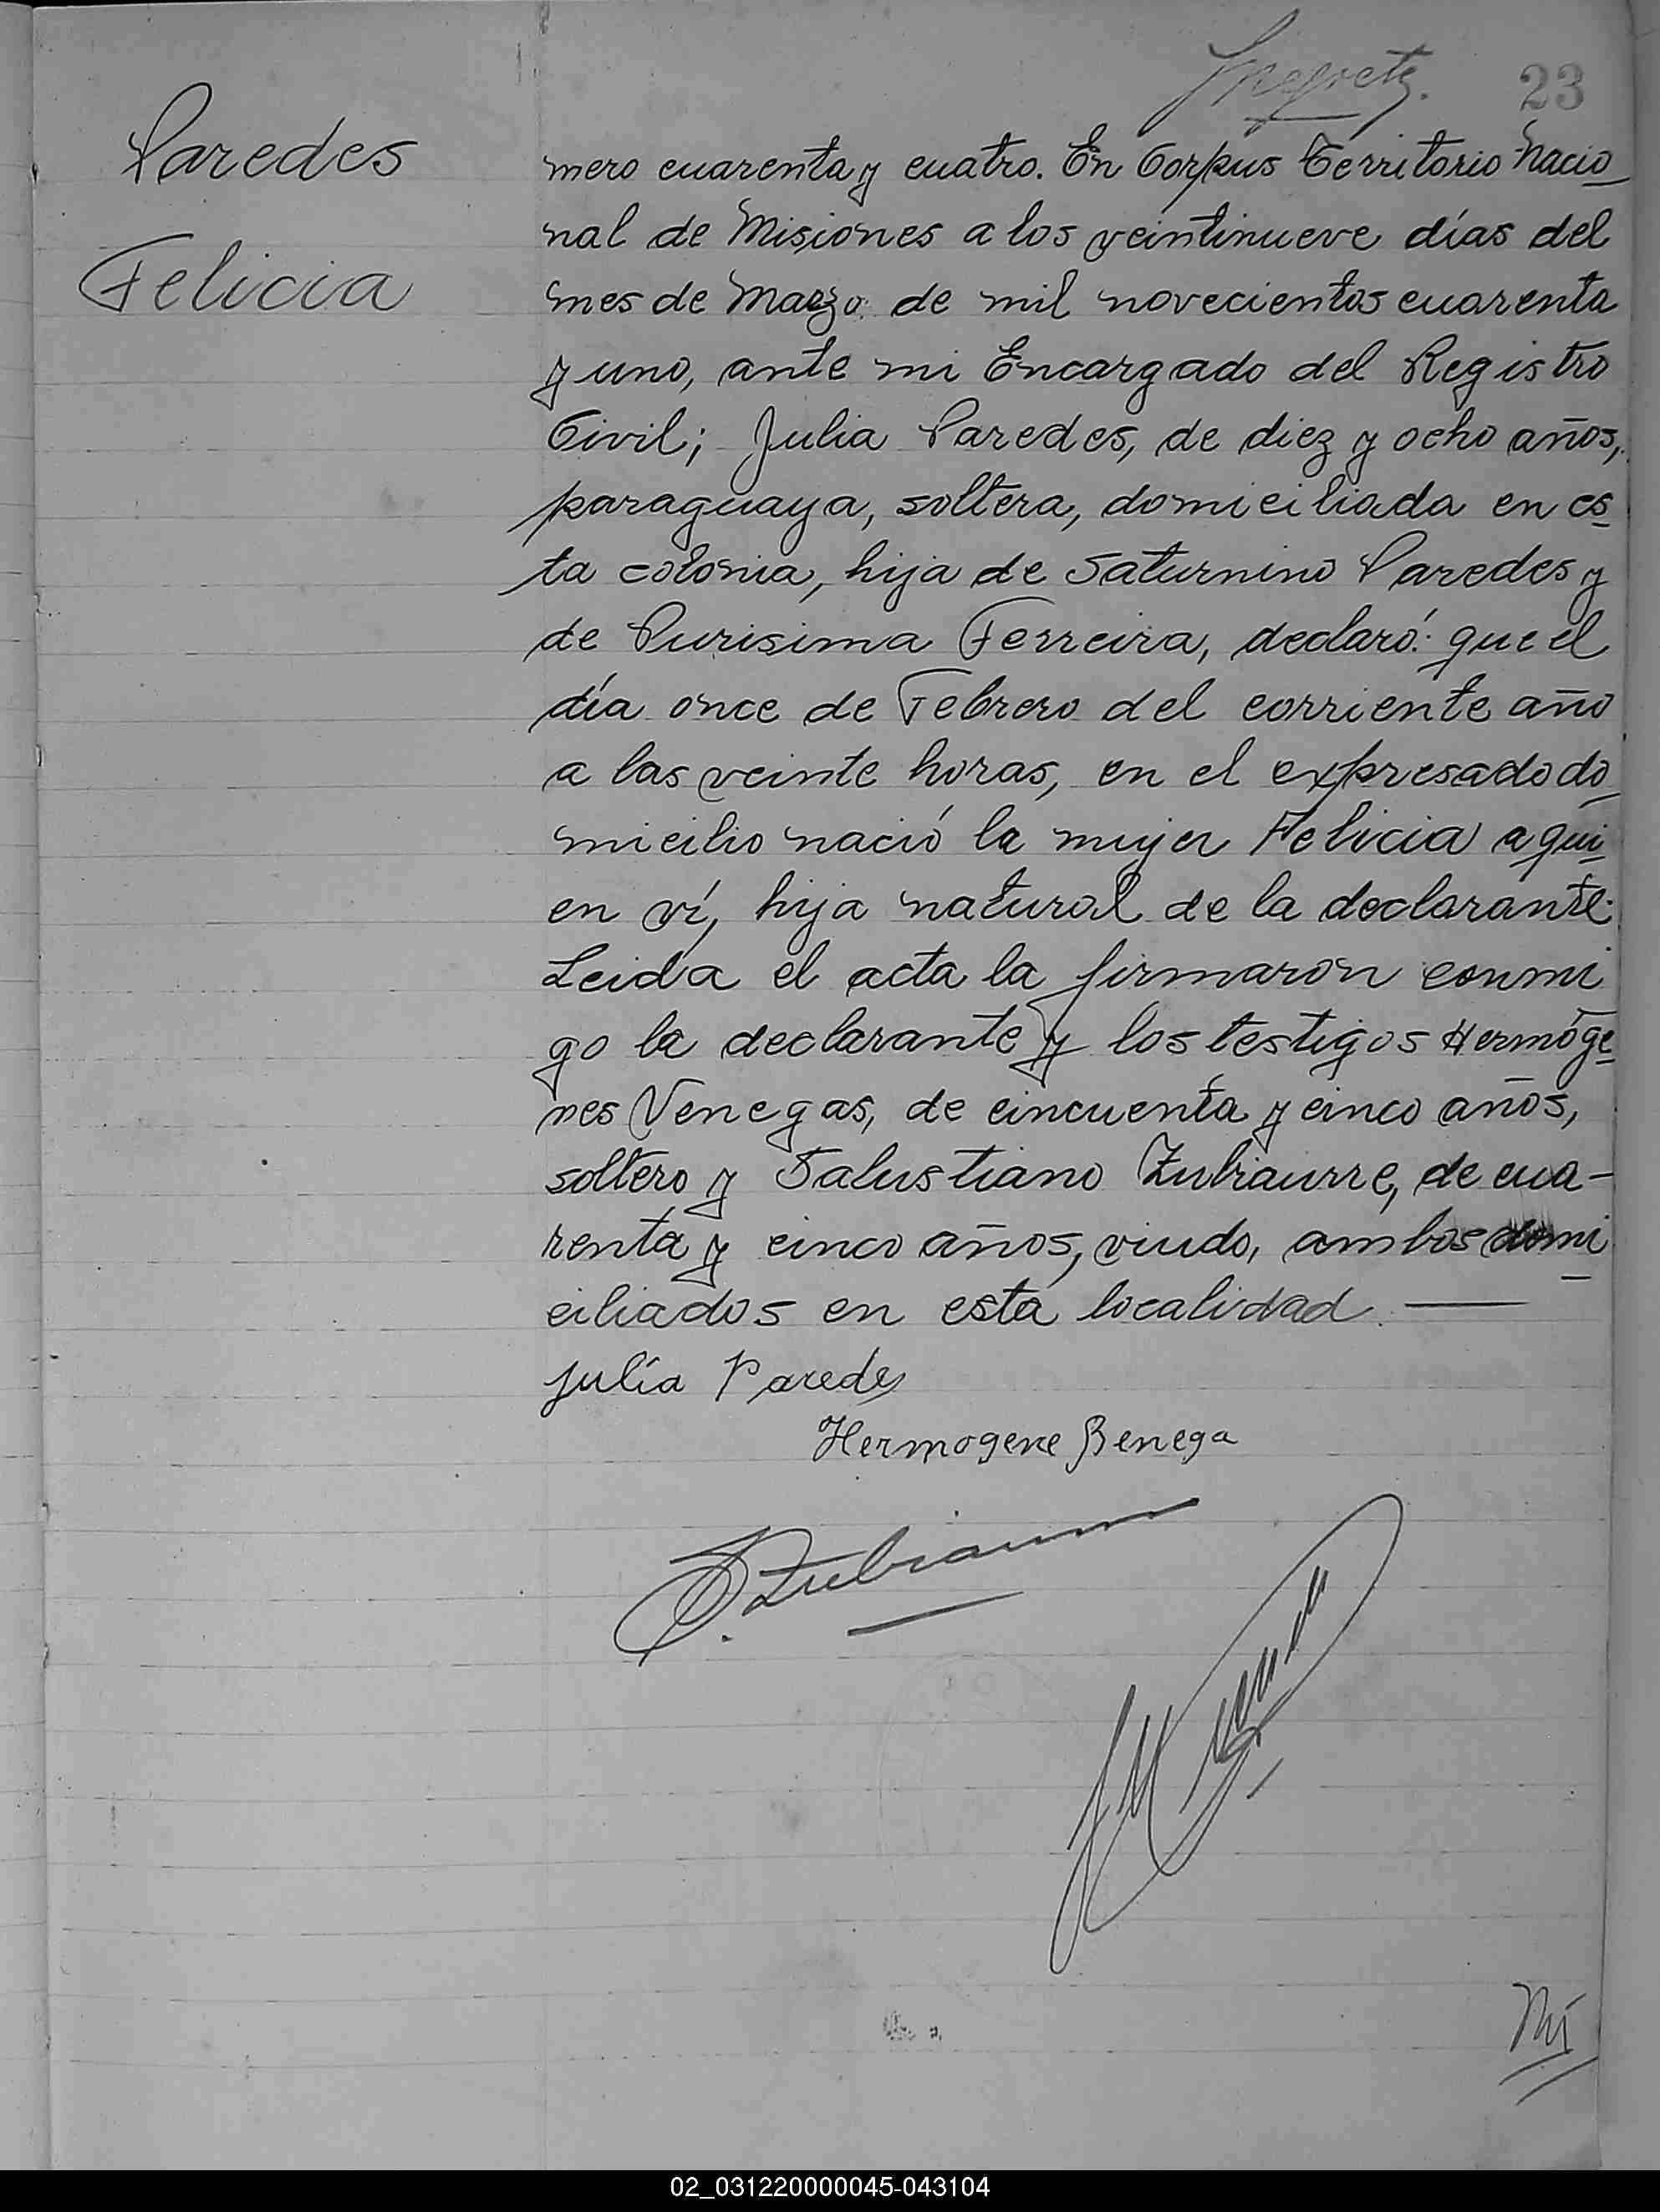 23
Paredes
Felicia
mero cuarenta y cuatro. En Corpus Territorio Nacio
nal de Misiones a los veintinueve días del
mes de Marzo de mil novecientos cuarenta
y uno, ante mi Encargado del Registro
Civil; Julia Paredes, de diez y ocho años,
paraguaya, soltera, domiciliada en es
ta colonia, hija de Saturnino Paredes y
de Purisima Ferreira, declaró: que el
día once de Febrero del corriente año
a las veinte horas, en el expresado do
micilio nació la mujer Felicia a qui
en ví, hija natural de la declarante.
Leida el acta la firmaron conmi
go la declarante y los testigos Hermóge
nes Venegas, de cincuenta y cinco años,
soltero y Salustiano Zubiaurre, de cua-
renta y cinco años, viudo, ambos domi
ciliados en esta localidad.
Julía Paredes
Hermogene Benega
S. Zubiaurre
Nú
02_031220000045-043104